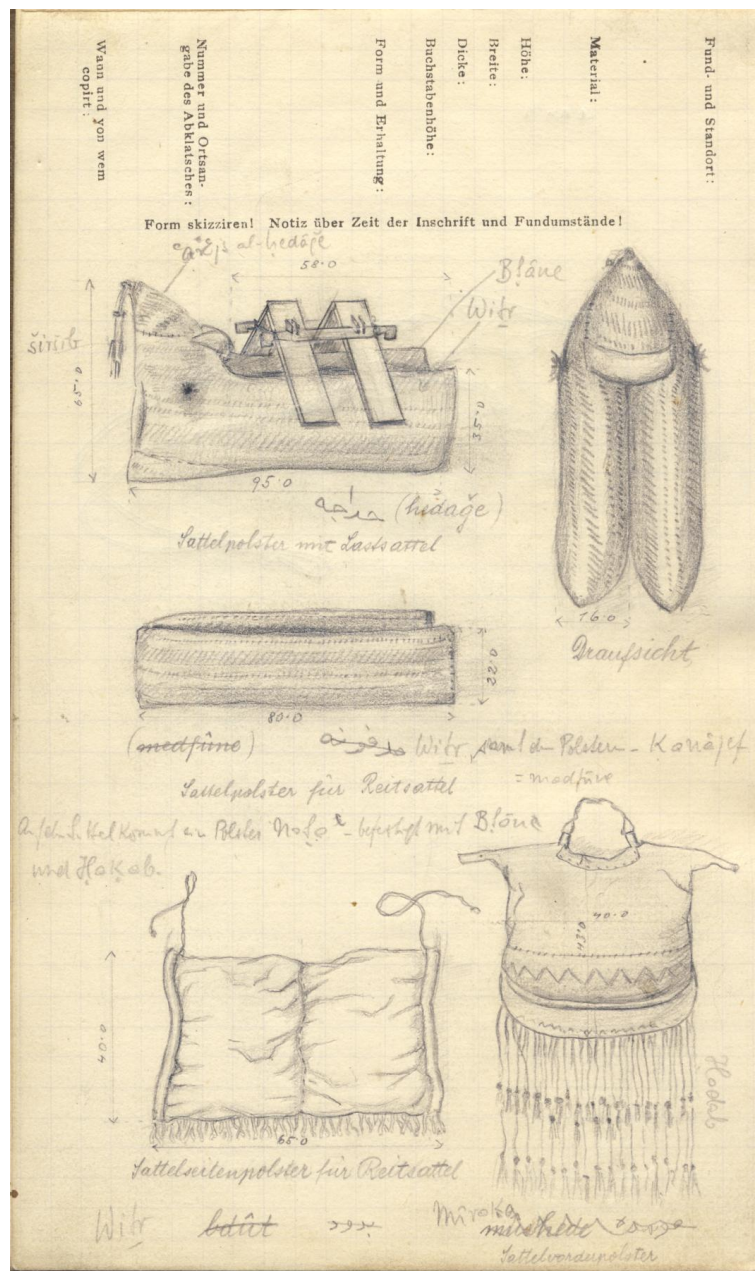 Fund- und Standort:
Material:
Höhe:
Breite:
Dicke:
Buchstabenhöhe:
Form und Erhaltung:
Nummer und Ortsan-
gabe des Abklatsches:
Wann und von wem
copirt:
Form skizziren! Notiz über Zeit der Inschrift und Fundumstände!
al-hedāǧe
58·0
Blāne
Witr
širšib
65·0
35·0
95·0
حداجه (hidaǧe)
Sattelpolster mit Lastsattel
16·0
Draufsicht
22·0
80·0
(medfûne) Witr samt den Polstern - Kanâjef
= medfûne
Sattelpolster für Reitsattel
Auf den Sattel kommt ein Polster - befestigt mit Blāne
und Hakab.
40·0
40·0
65·0
Hodeb
Sattelseitenpolster für Reitsattel
Witr bdût Mîraka
Sattelvorderpolster